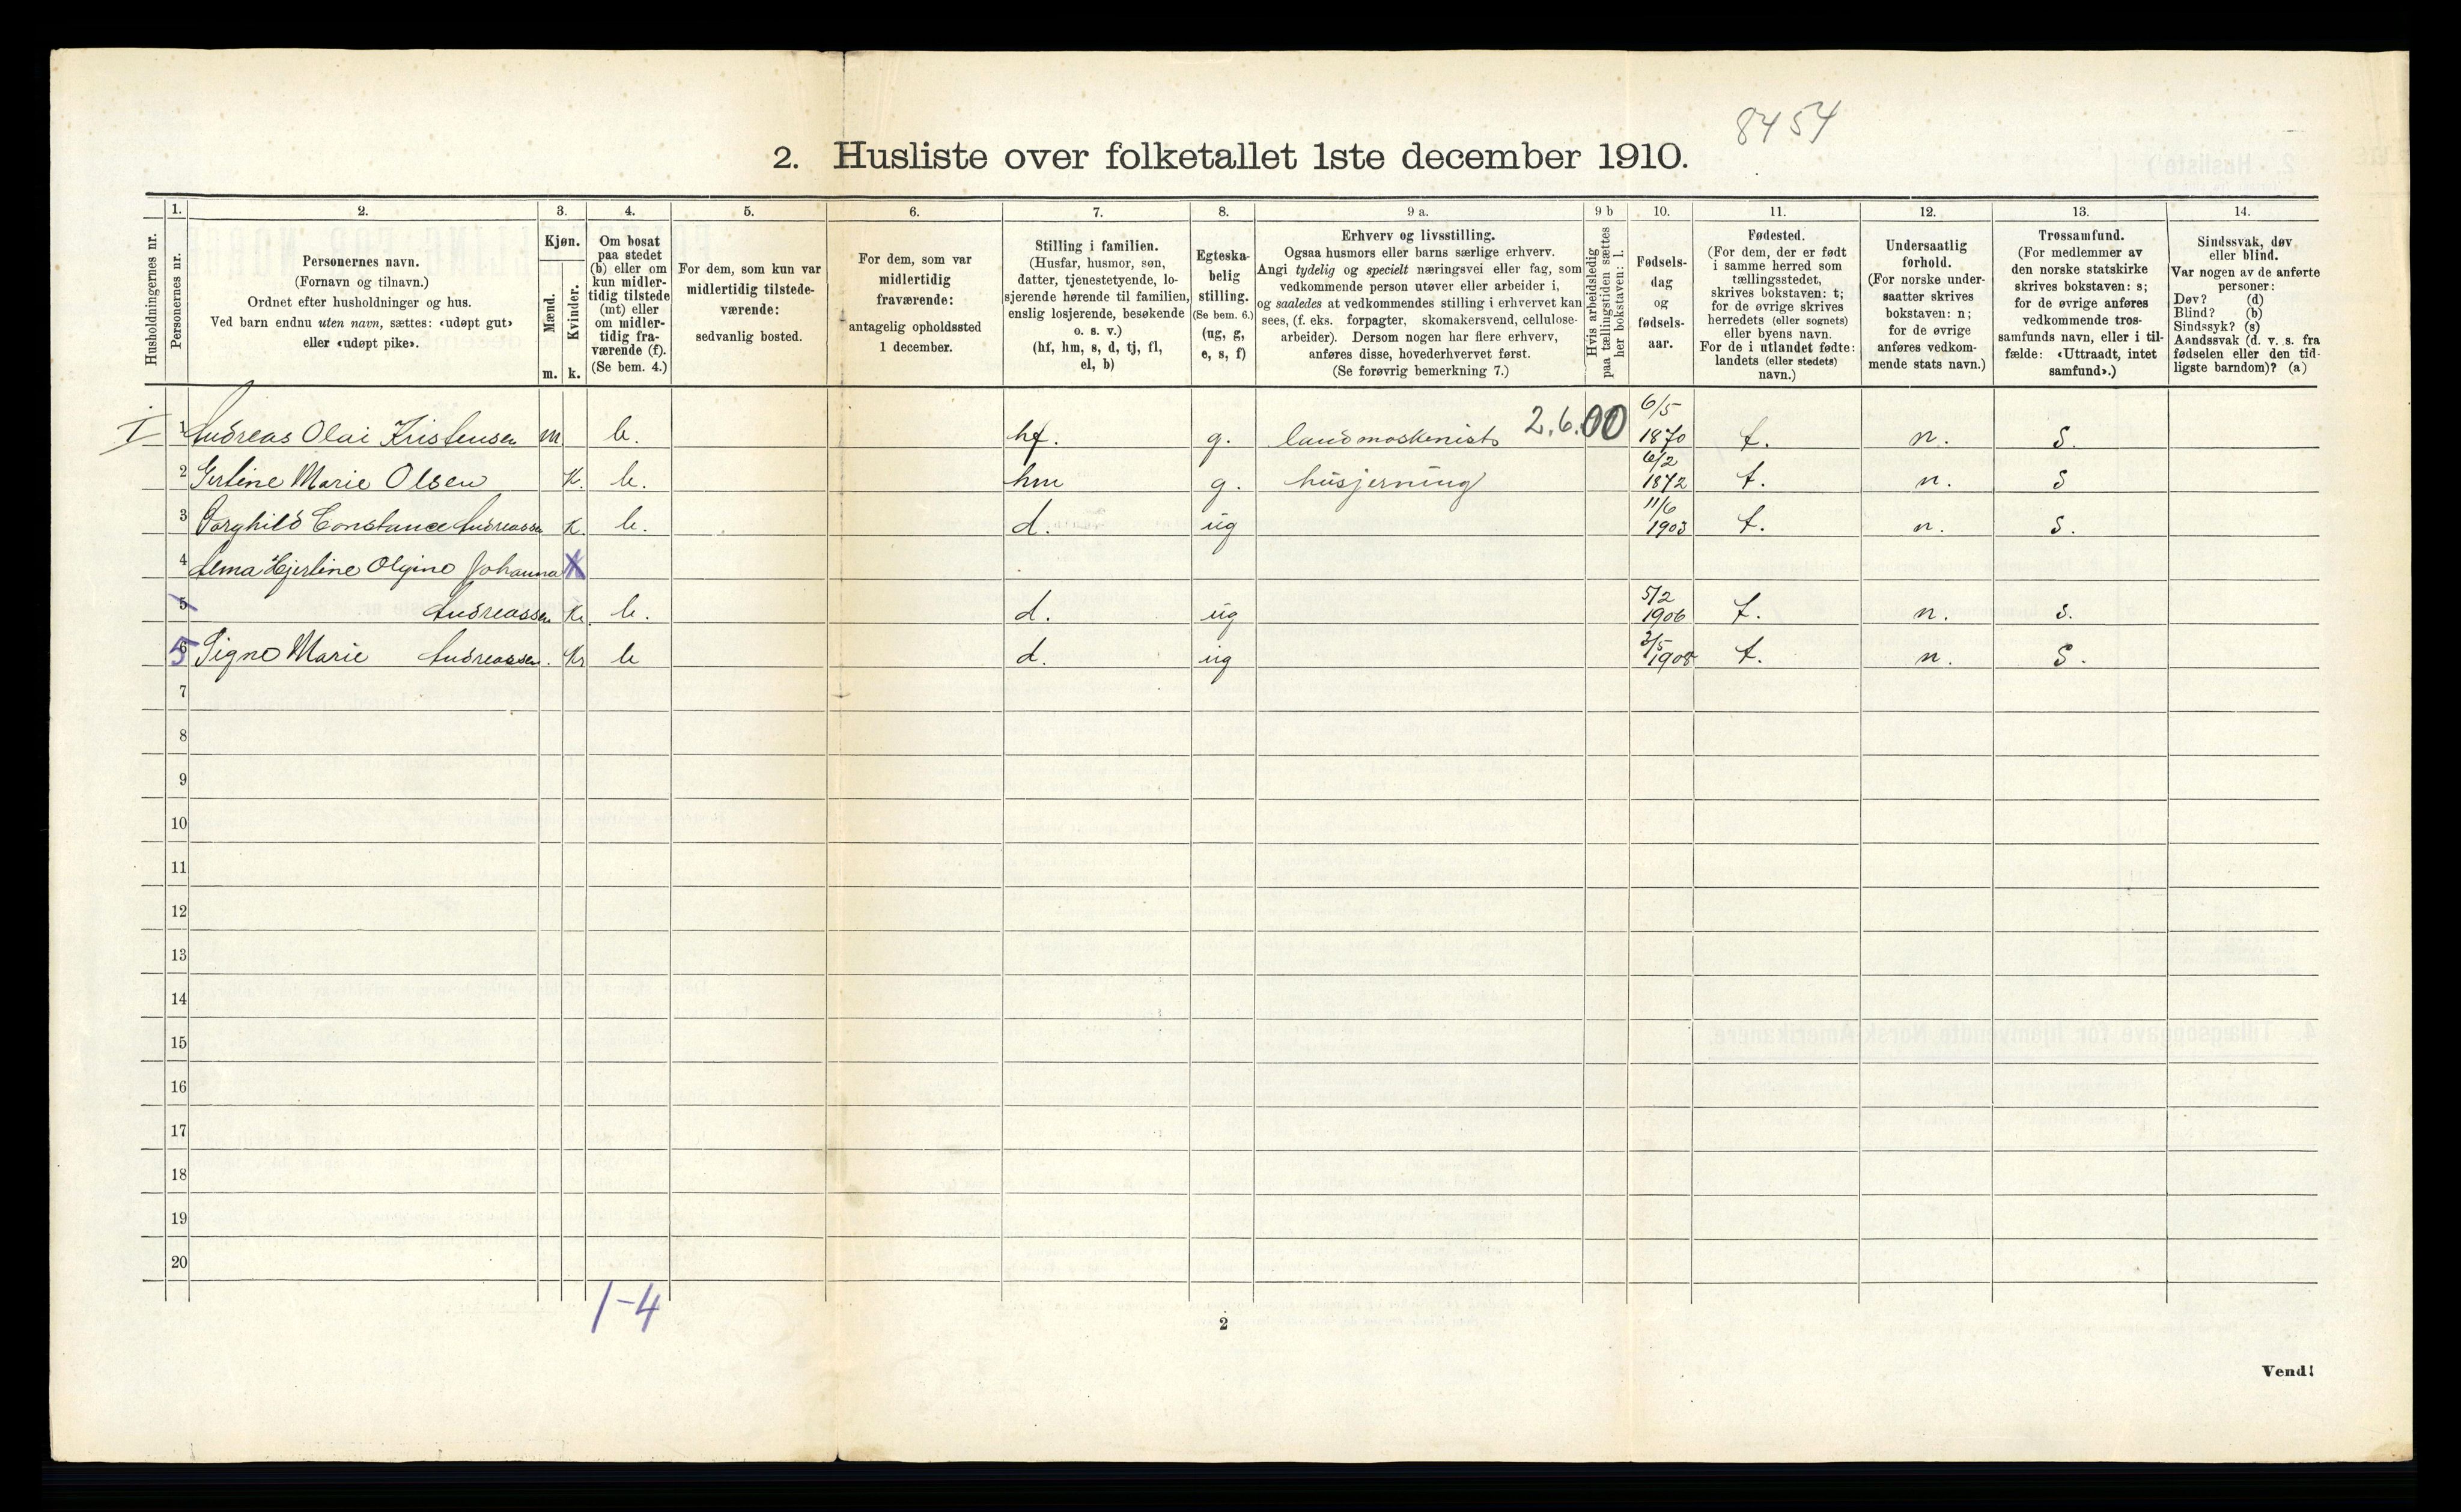 8454
2. Husliste over folketallet 1ste december 1910.
Husholdningernes nr.
1.
Personernes nr.
2.
Personernes navn.
(Fornavn og tilnavn.)
Ordnet efter husholdninger og hus.
Ved barn endnu uten navn, sættes: «udøpt gut»
eller «udøpt pike».
3.
Kjøn.
Mænd.
Kvinder.
m.
k.
4.
Om bosat
paa stedet
(b) eller om
kun midler-
tidig tilstede
(mt) eller
om midler-
tidig fra-
værende (f).
(Se bem. 4.)
5.
For dem, som kun var
midlertidig tilstede-
værende:
sedvanlig bosted.
6.
For dem, som var
midlertidig
fraværende:
antagelig opholdssted
1 december.
7.
Stilling i familien.
(Husfar, husmor, søn,
datter, tjenestetyende, lo-
sjerende hørende til familien,
enslig losjerende, besøkende
o. s. v.)
(hf, hm, s, d, tj, fl,
el, b)
8.
Egteska-
belig
stilling.
(Se bem. 6.)
(ug, g,
e, s, f)
9 a.
Erhverv og livsstilling.
Ogsaa husmors eller barns særlige erhverv.
Angi tydelig og specielt næringsvei eller fag, som
vedkommende person utøver eller arbeider i,
og saaledes at vedkommendes stilling i erhvervet kan
sees, (f. eks. forpagter, skomakersvend, cellulose-
arbeider). Dersom nogen har flere erhverv,
anføres disse, hovederhvervet først.
(Se forøvrig bemerkning 7.)
9 b
Hvis arbeidsledig
paa tællingstiden sættes
her bokstaven: l.
10.
Fødsels-
dag
og
fødsels-
aar.
11.
Fødested.
(For dem, der er født
i samme herred som
tællingsstedet,
skrives bokstaven: t;
for de øvrige skrives
herredets (eller sognets)
eller byens navn.
For de i utlandet fødte:
landets (eller stedets)
navn.)
12.
Undersaatlig
forhold.
(For norske under-
saatter skrives
bokstaven: n;
for de øvrige
anføres vedkom-
mende stats navn.)
13.
Trossamfund.
(For medlemmer av
den norske statskirke
skrives bokstaven: s;
for de øvrige anføres
vedkommende tros-
samfunds navn, eller i til-
fælde: «Uttraadt, intet
samfund».)
14.
Sindssvak, døv
eller blind.
Var nogen av de anførte
personer:
Døv? (d)
Blind? (b)
Sindssyk? (s)
Aandssvak (d. v. s. fra
fødselen eller den tid-
ligste barndom)? (a)
I 1 Andreas Olai Kristensen m b. hf. g. landmaskinist 2.6.00 6/5 1870 t. n. s.
2 Gertine Marie Olsen K. b. hm g. husjerning 6/2 1872 t. n. s
3 Borghild Constance Andreassen K. b. d. ug 11/6 1903 t. n. s.
4 Alma Hjertine Olgine Johanna
5 Andreassen K. b. d. ug 5/2 1906 t. n. s.
6 5 Signe Marie Andreassen. K b d. ug 3/5 1908 t. n. s.
7
8
9
10
11
12
13
14
15
16
17
18
19
20
1-4
2
Vend!